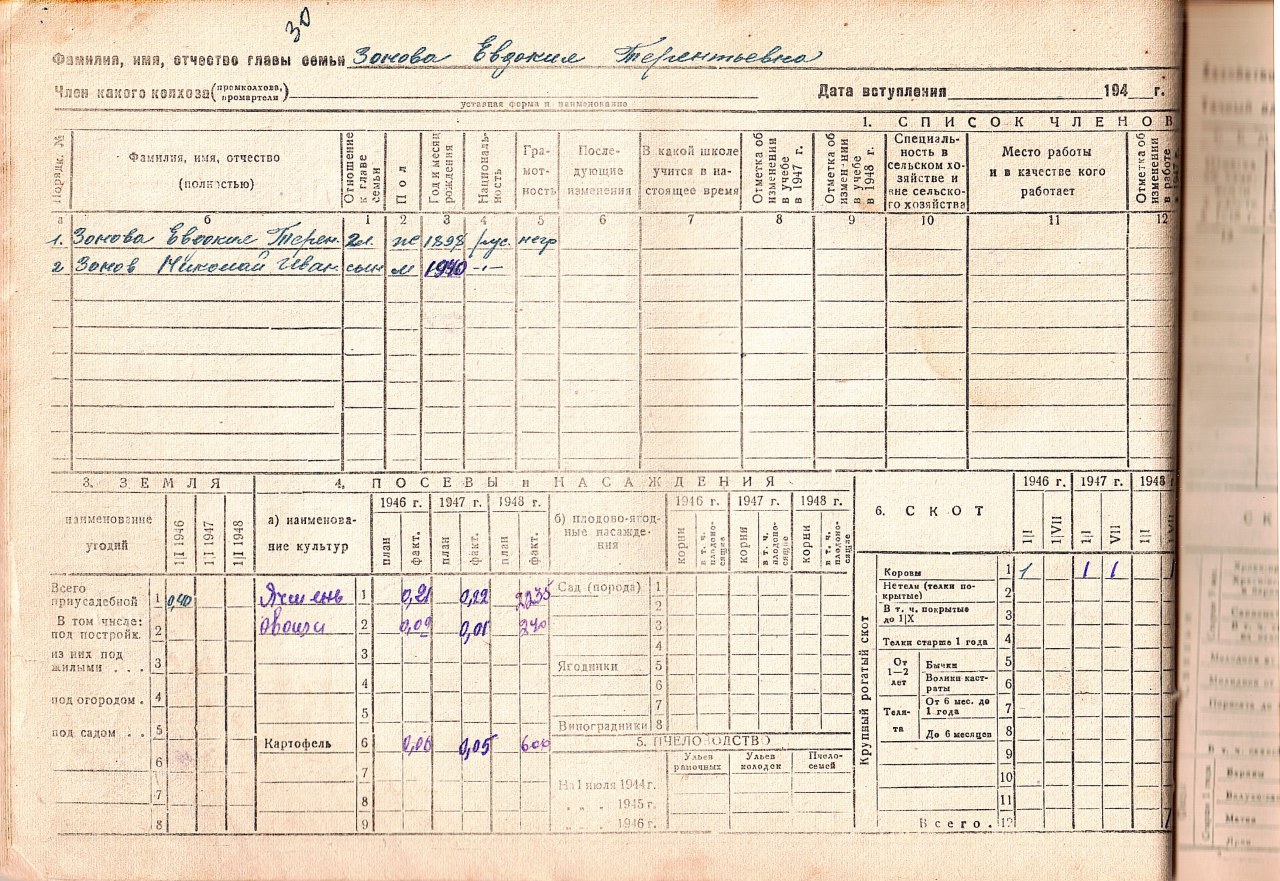 30
Фамилия, имя, отчество главы семьи Зонова Евдокия Терентьевна
Член какого колхоза (промколхоза, промартели)
уставная форма и наименование
Дата вступления 194 г.
1. СПИСОК ЧЛЕНОВ
Порядк. №
Фамилия, имя, отчество (полностью)
Отношение к главе семьи
Пол
Год и месяц рождения
Националь-ность
Гра-мот-ность
После-дующие изменения
В какой школе учится в на-стоящее время
Отметка об изменении в учебе в 1947 г.
Отметка об измен-нии в учебе в 1948 г.
Специаль-ность в сельском хо-зяйстве и вне сельско-го хозяйства
Место работы и в качестве кого работает
Отметка об изменении в работе
а б 1 2 3 4 5 6 7 8 9 10 11 12
1. Зонова Евдокия Терен. гл. же 1898 рус. негр
2 Зонов Николай Иван сын м 1940 -"-
3. ЗЕМЛЯ
наименование угодий
1|I 1946
1|I 1947
1|I 1948
Всего приусадебной 1 0,40
В том числе: под постройк. 2
из них под жилыми . . . 3
под огородом . 4
под садом . . 5
6
7
8
4. ПОСЕВЫ и НАСАЖДЕНИЯ
а) наименова-ние культур
1946 г. 1947 г. 1948 г.
план факт. план факт. план факт.
Ячмень 1 0,21 0,22
Овощи 2 0,09 0,01
3
4
5
Картофель 6 0,06 0,05 600
7
8
9
б) плодово-ягод-ные насажде-ния
1946 г. 1947 г. 1948 г.
корни в т. ч. плодоно-сящие корни в т. ч. плодоно-сящие корни в т. ч. плодоно-сящие
Сад (порода) 1
2
3
4
Ягодники 5
6
7
Виноградники 8
5. ПЧЕЛОВОДСТВО
Ульев рамочных
Ульев колодок
Пчело-семей
На 1 июля 1944 г.
" " " 1945 г.
" " " 1946 г.
6. СКОТ
1946 г. 1947 г. 1948
1|I 1|VII 1|I VII 1|I
Крупный рогатый скот
Коровы 1 1 1 1
Нетели (телки по-крытые) 2
В т. ч. покрытые до 1|X 3
Телки старше 1 года 4
От 1—2 лет
Бычки 5
Волики каст-раты 6
Теля-та
От 6 мес. до 1 года 7
До 6 месяцев 8
9
10
11
Всего . 12